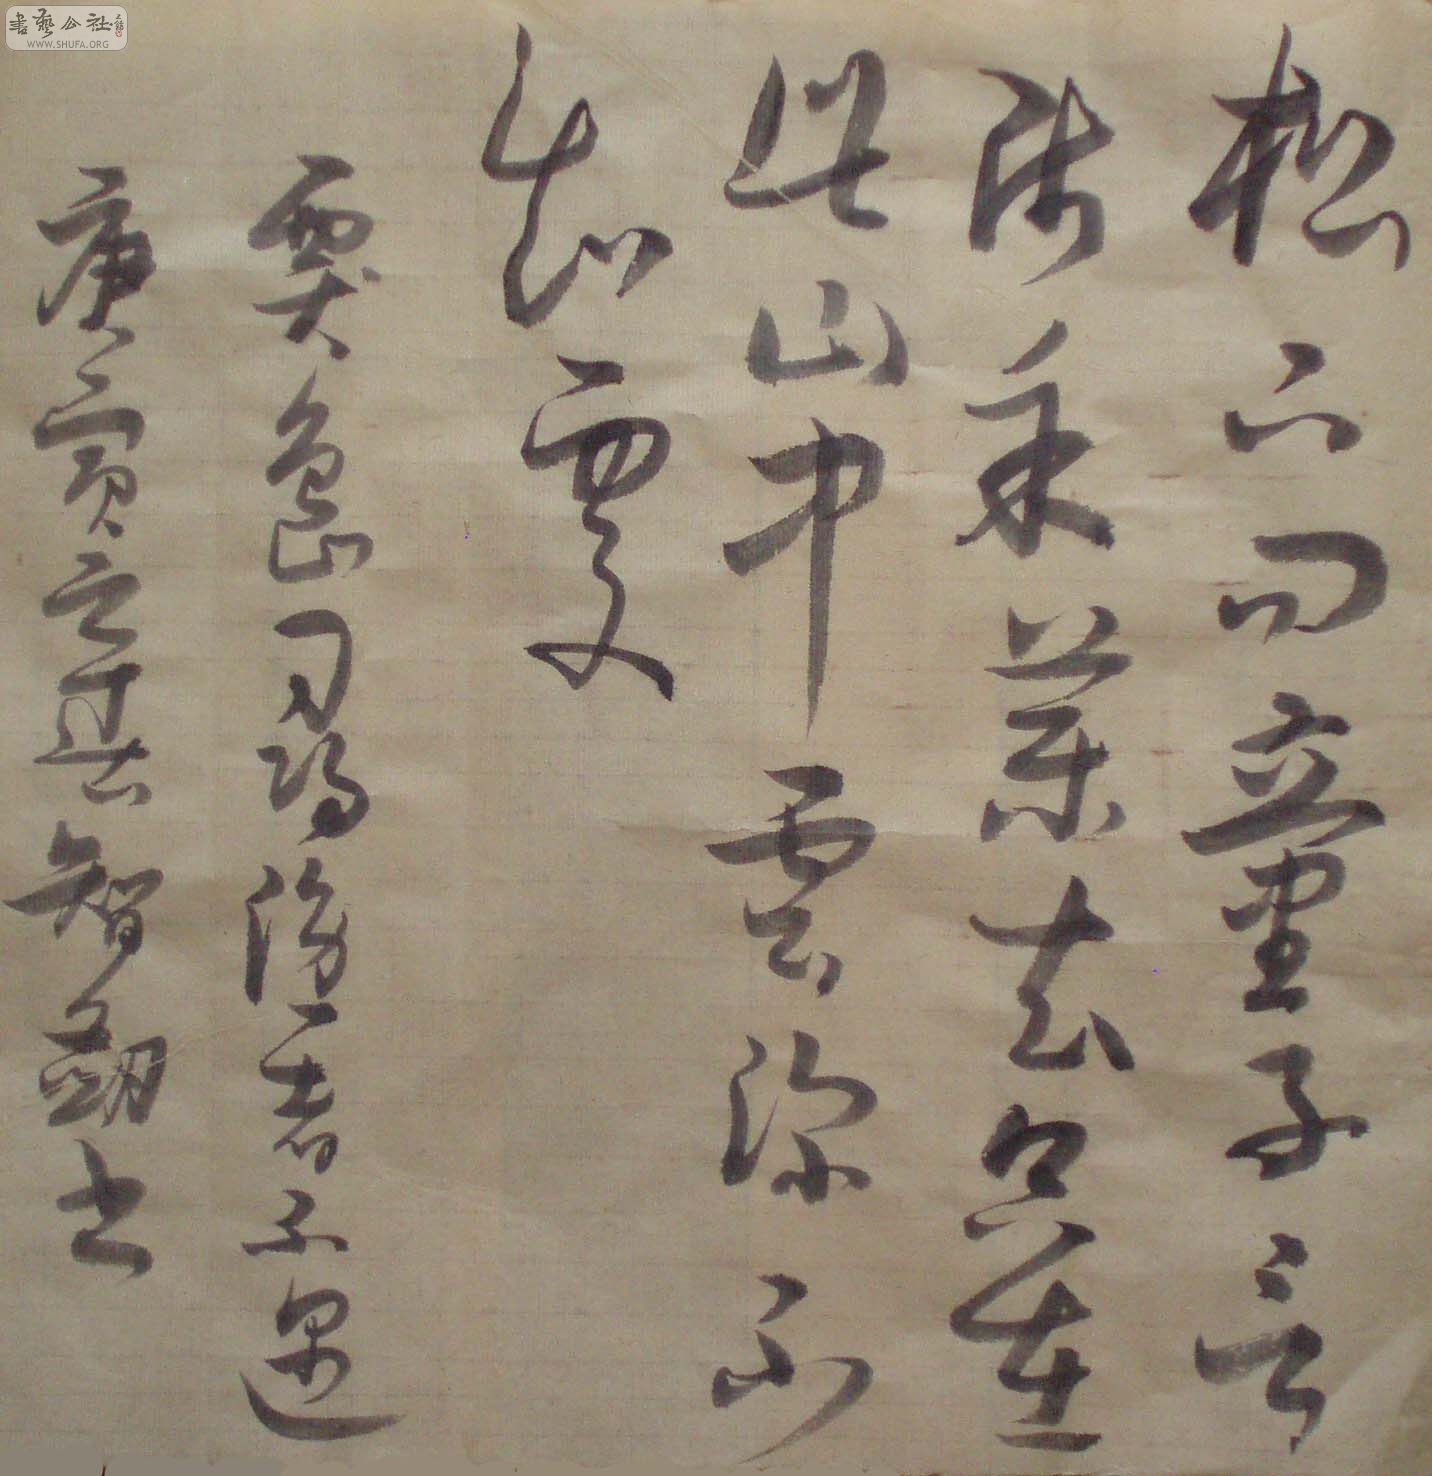 松下问童子言
师采药去只在
此山中云深不
知处
贾岛山寻隐者不遇
庚寅之 智 书
書藝公社
WWW.SHUFA.ORG